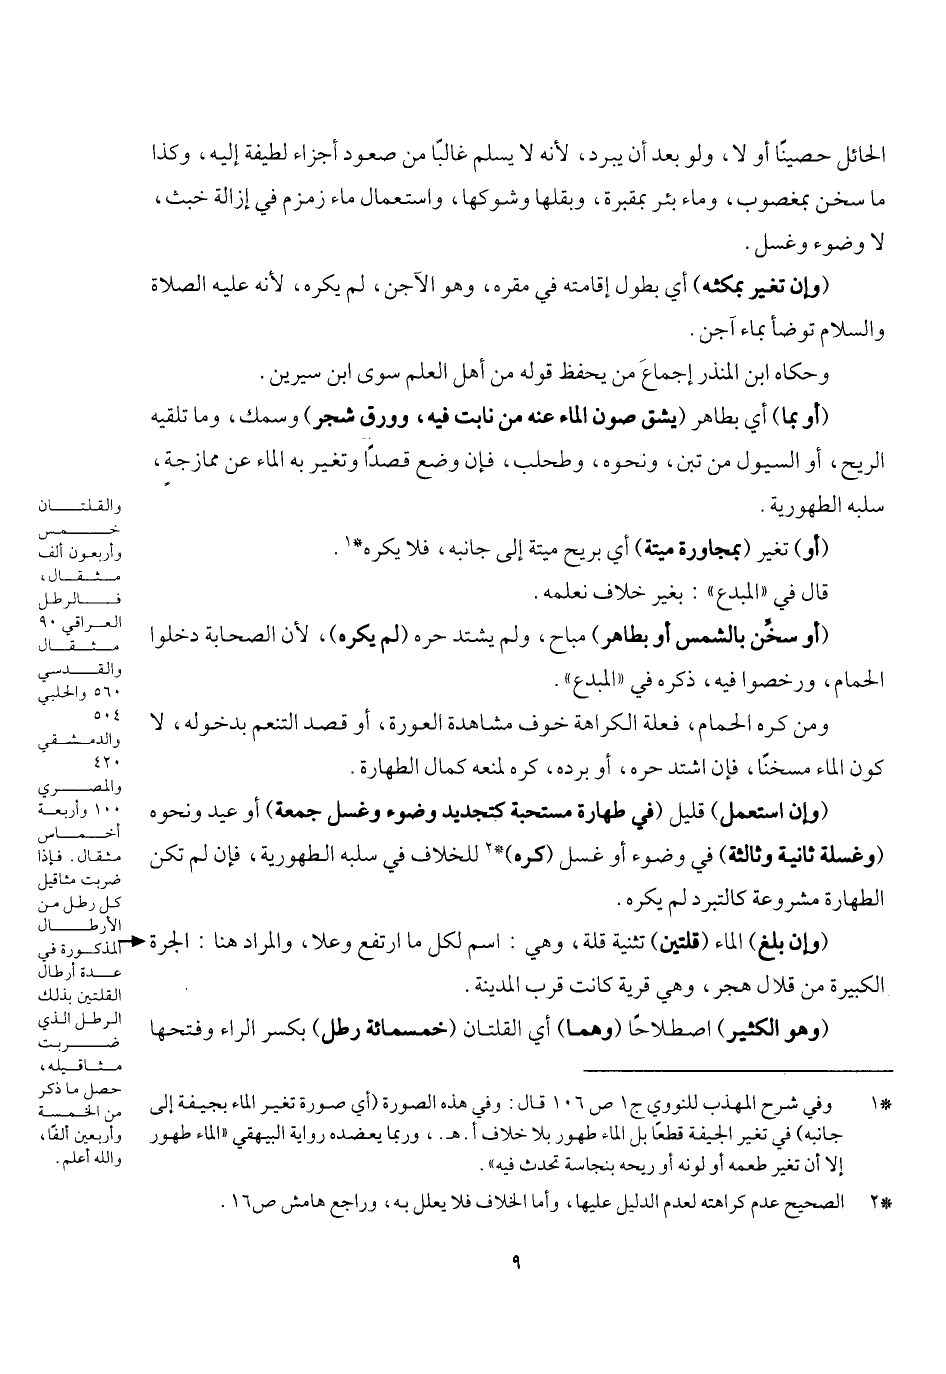 الحائل حصينًا أو لا، ولو بعد أن يبرد، لأنه لا يسلم غالبًا من صعود أجزاء لطيفة إليه، وكذا
ما سخن بمغصوب، وماء بئر بمقبرة، وبقلها وشوكها، واستعمال ماء زمزم في إزالة خبث،
لا وضوء وغسل.
(وإن تغير بمكثه) أي بطول إقامته في مقره، وهو الآجن، لم يكره، لأنه عليه الصلاة
والسلام توضأ بماء آجن.
وحكاه ابن المنذر إجماعَ من يحفظ قوله من أهل العلم سوى ابن سيرين.
(أو بما) أي بطاهر (يشق صون الماء عنه من نابت فيه، وورق شجر) وسمك، وما تلقيه
الريح، أو السيول من تبن، ونحوه، وطحلب، فإن وضع قصدًا وتغير به الماء عن ممازجةٍ،
سلبه الطهورية.
(أو) تغير (بمجاورة ميتة) أي بريح ميتة إلى جانبه، فلا يكره*١.
قال في «المبدع» : بغير خلاف نعلمه.
(أو سخِّن بالشمس أو بطاهر) مباح، ولم يشتد حره (لم يكره)، لأن الصحابة دخلوا
الحمام، ورخصوا فيه، ذكره في «المبدع».
ومن كره الحمام، فعلة الكراهة خوف مشاهدة العورة، أو قصد التنعم بدخوله، لا
كون الماء مسخنًا، فإن اشتد حره، أو برده، كره لمنعه كمال الطهارة.
(وإن استعمل) قليل (في طهارة مستحبة كتجديد وضوء وغسل جمعة) أو عيد ونحوه
(وغسلة ثانية وثالثة) في وضوء أو غسل (كره)*٢ للخلاف في سلبه الطهورية، فإن لم تكن
الطهارة مشروعة كالتبرد لم يكره.
(وإن بلغ) الماء (قلتين) تثنية قلة، وهي : اسم لكل ما ارتفع وعلا، والمراد هنا : الجرة
الكبيرة من قلال هجر، وهي قرية كانت قرب المدينة.
(وهو الكثير) اصطلاحًا (وهما) أي القلتان (خمسمائة رطل) بكسر الراء وفتحها
والقلتــان
خـــمـس
وأربعون ألف
مـثـقـال،
فــالرطـل
العـراقي ٩٠
مـثـقـال
والقـدسي
٥٦٠ والحلبي
٥٠٤
والدمـشـقي
٤٢٠
والمصـري
١٠٠ وأربعـة
أخـمـاس
مثقال. فإذا
ضربت مثاقيل
كل رطل من
الأرطــال
المذكورة في
عـدة أرطال
القلتين بذلك
الرطل الذي
ضـــربت
مـثـاقيله،
حصل ما ذكر
من الخمـسـة
وأربعين ألفًا،
والله أعلم.
*١ وفي شرح المهذب للنووي ج١ ص١٠٦ قال : وفي هذه الصورة (أي صورة تغير الماء بجيفة إلى
جانبه) في تغير الجيفة قطعًا بل الماء طهور بلا خلاف أ. هـ.، وربما يعضده رواية البيهقي «الماء طهور
إلا أن تغير طعمه أو لونه أو ريحه بنجاسة تحدث فيه».
*٢ الصحيح عدم كراهته لعدم الدليل عليها، وأما الخلاف فلا يعلل به، وراجع هامش ص١٦.
٩